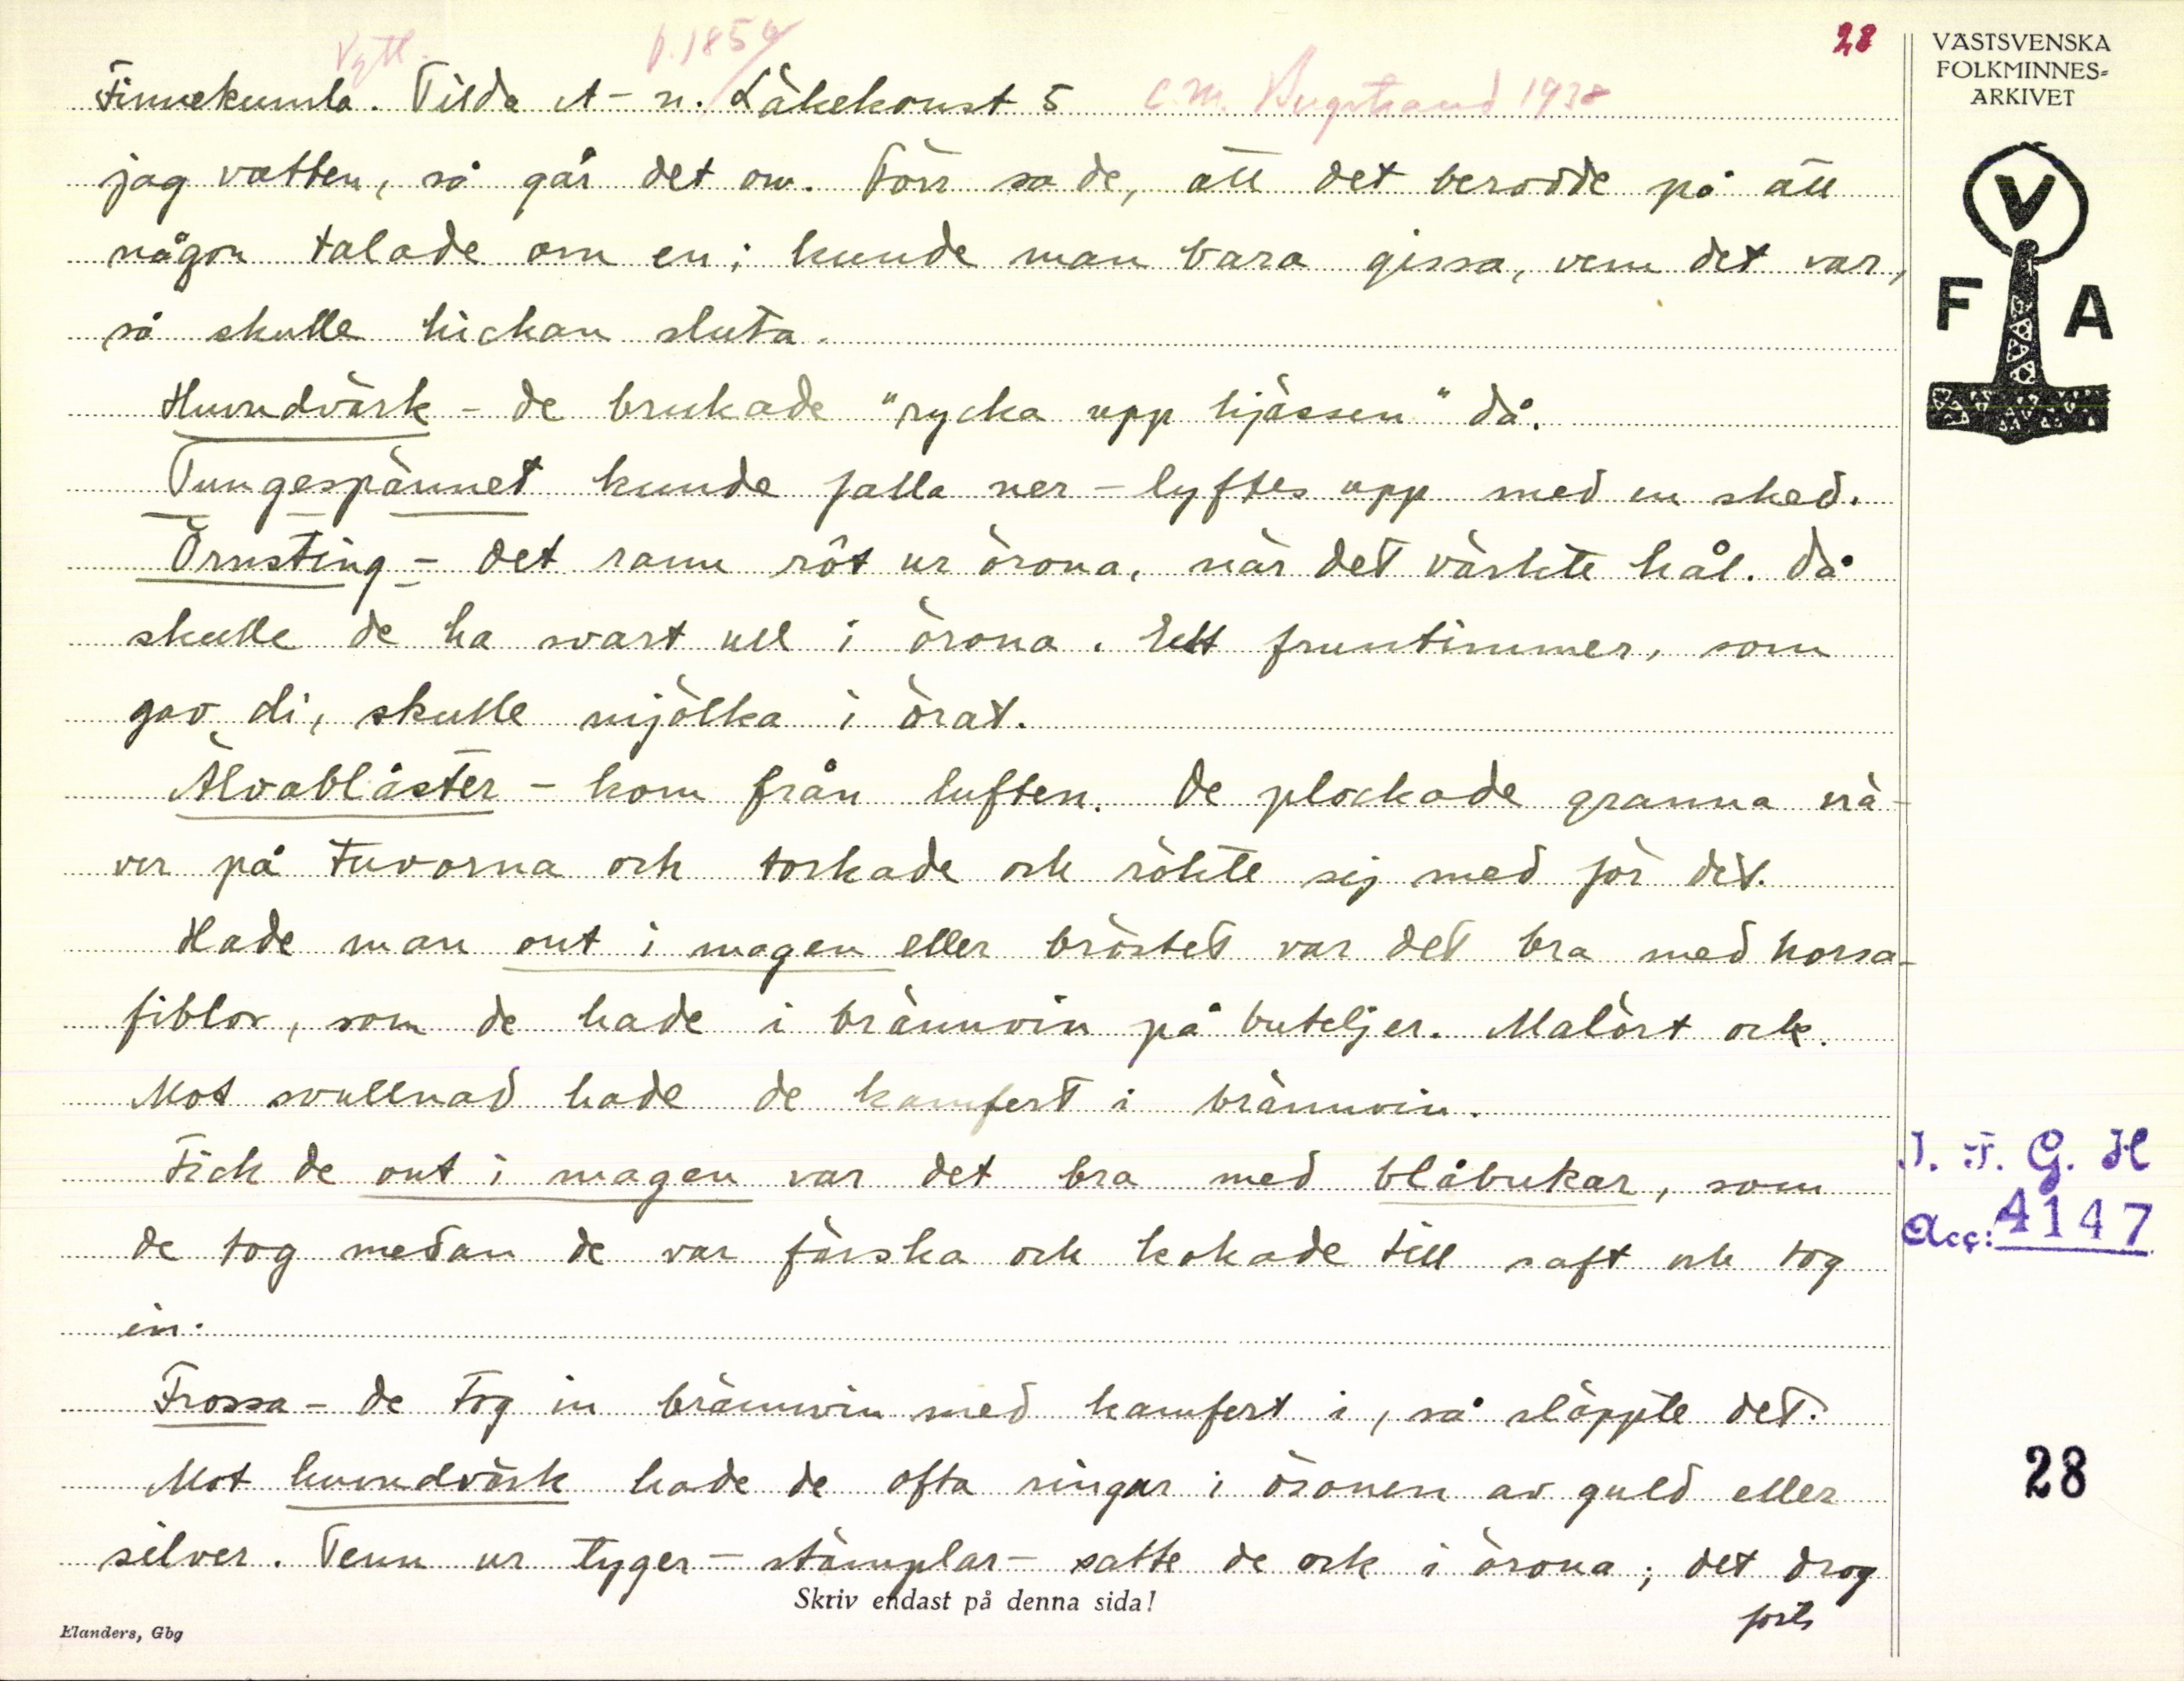 28
Vgtl. f. 1859
Finnekumla. Tilda A-n. Läkekonst 5 C.M. Bergstrand 1938
jag vatten, så går det om. Förr sa de, att det berodde på att
någon talade om en; kunde man bara gissa, vem det var,
så skulle hickan sluta.
Huvudvärk - de brukade "rycka upp hjässen" då.
Tungespännet kunde falla ner - lyftes upp med en sked.
Örnsting - det rann röt ur örona, när det värkte hål. Då
skulle de ha svart ull i örona. Ett fruntimmer, som
gav di, skulle mjölka i örat.
Älvablåster - kom från luften. De plockade granna nä-
ver på tuvorna och torkade och rökte sig med för det.
Hade man ont i magen eller bröstet var det bra med horsa-
fiblor, som de hade i brännvin på buteljer. Malört ock.
Mot svullnad hade de kamfert i brännvin.
Fick de ont i magen var det bra med blåbukar, som
de tog medan de var färska och kokade till saft och tog
in.
Frossa - de tog in brännvin med kamfert i, så släppte det.
Mot huvudvärk hade de ofta ringar i öronen av guld eller
silver. Tenn ur tyger - stämplar - satte de ock i örona; det drog
forts
Skriv endast på denna sida!
Elanders, Gbg
VÄSTSVENSKA
FOLKMINNES=
ARKIVET
V
F A
I. F. G. H
Acc: 4147
28